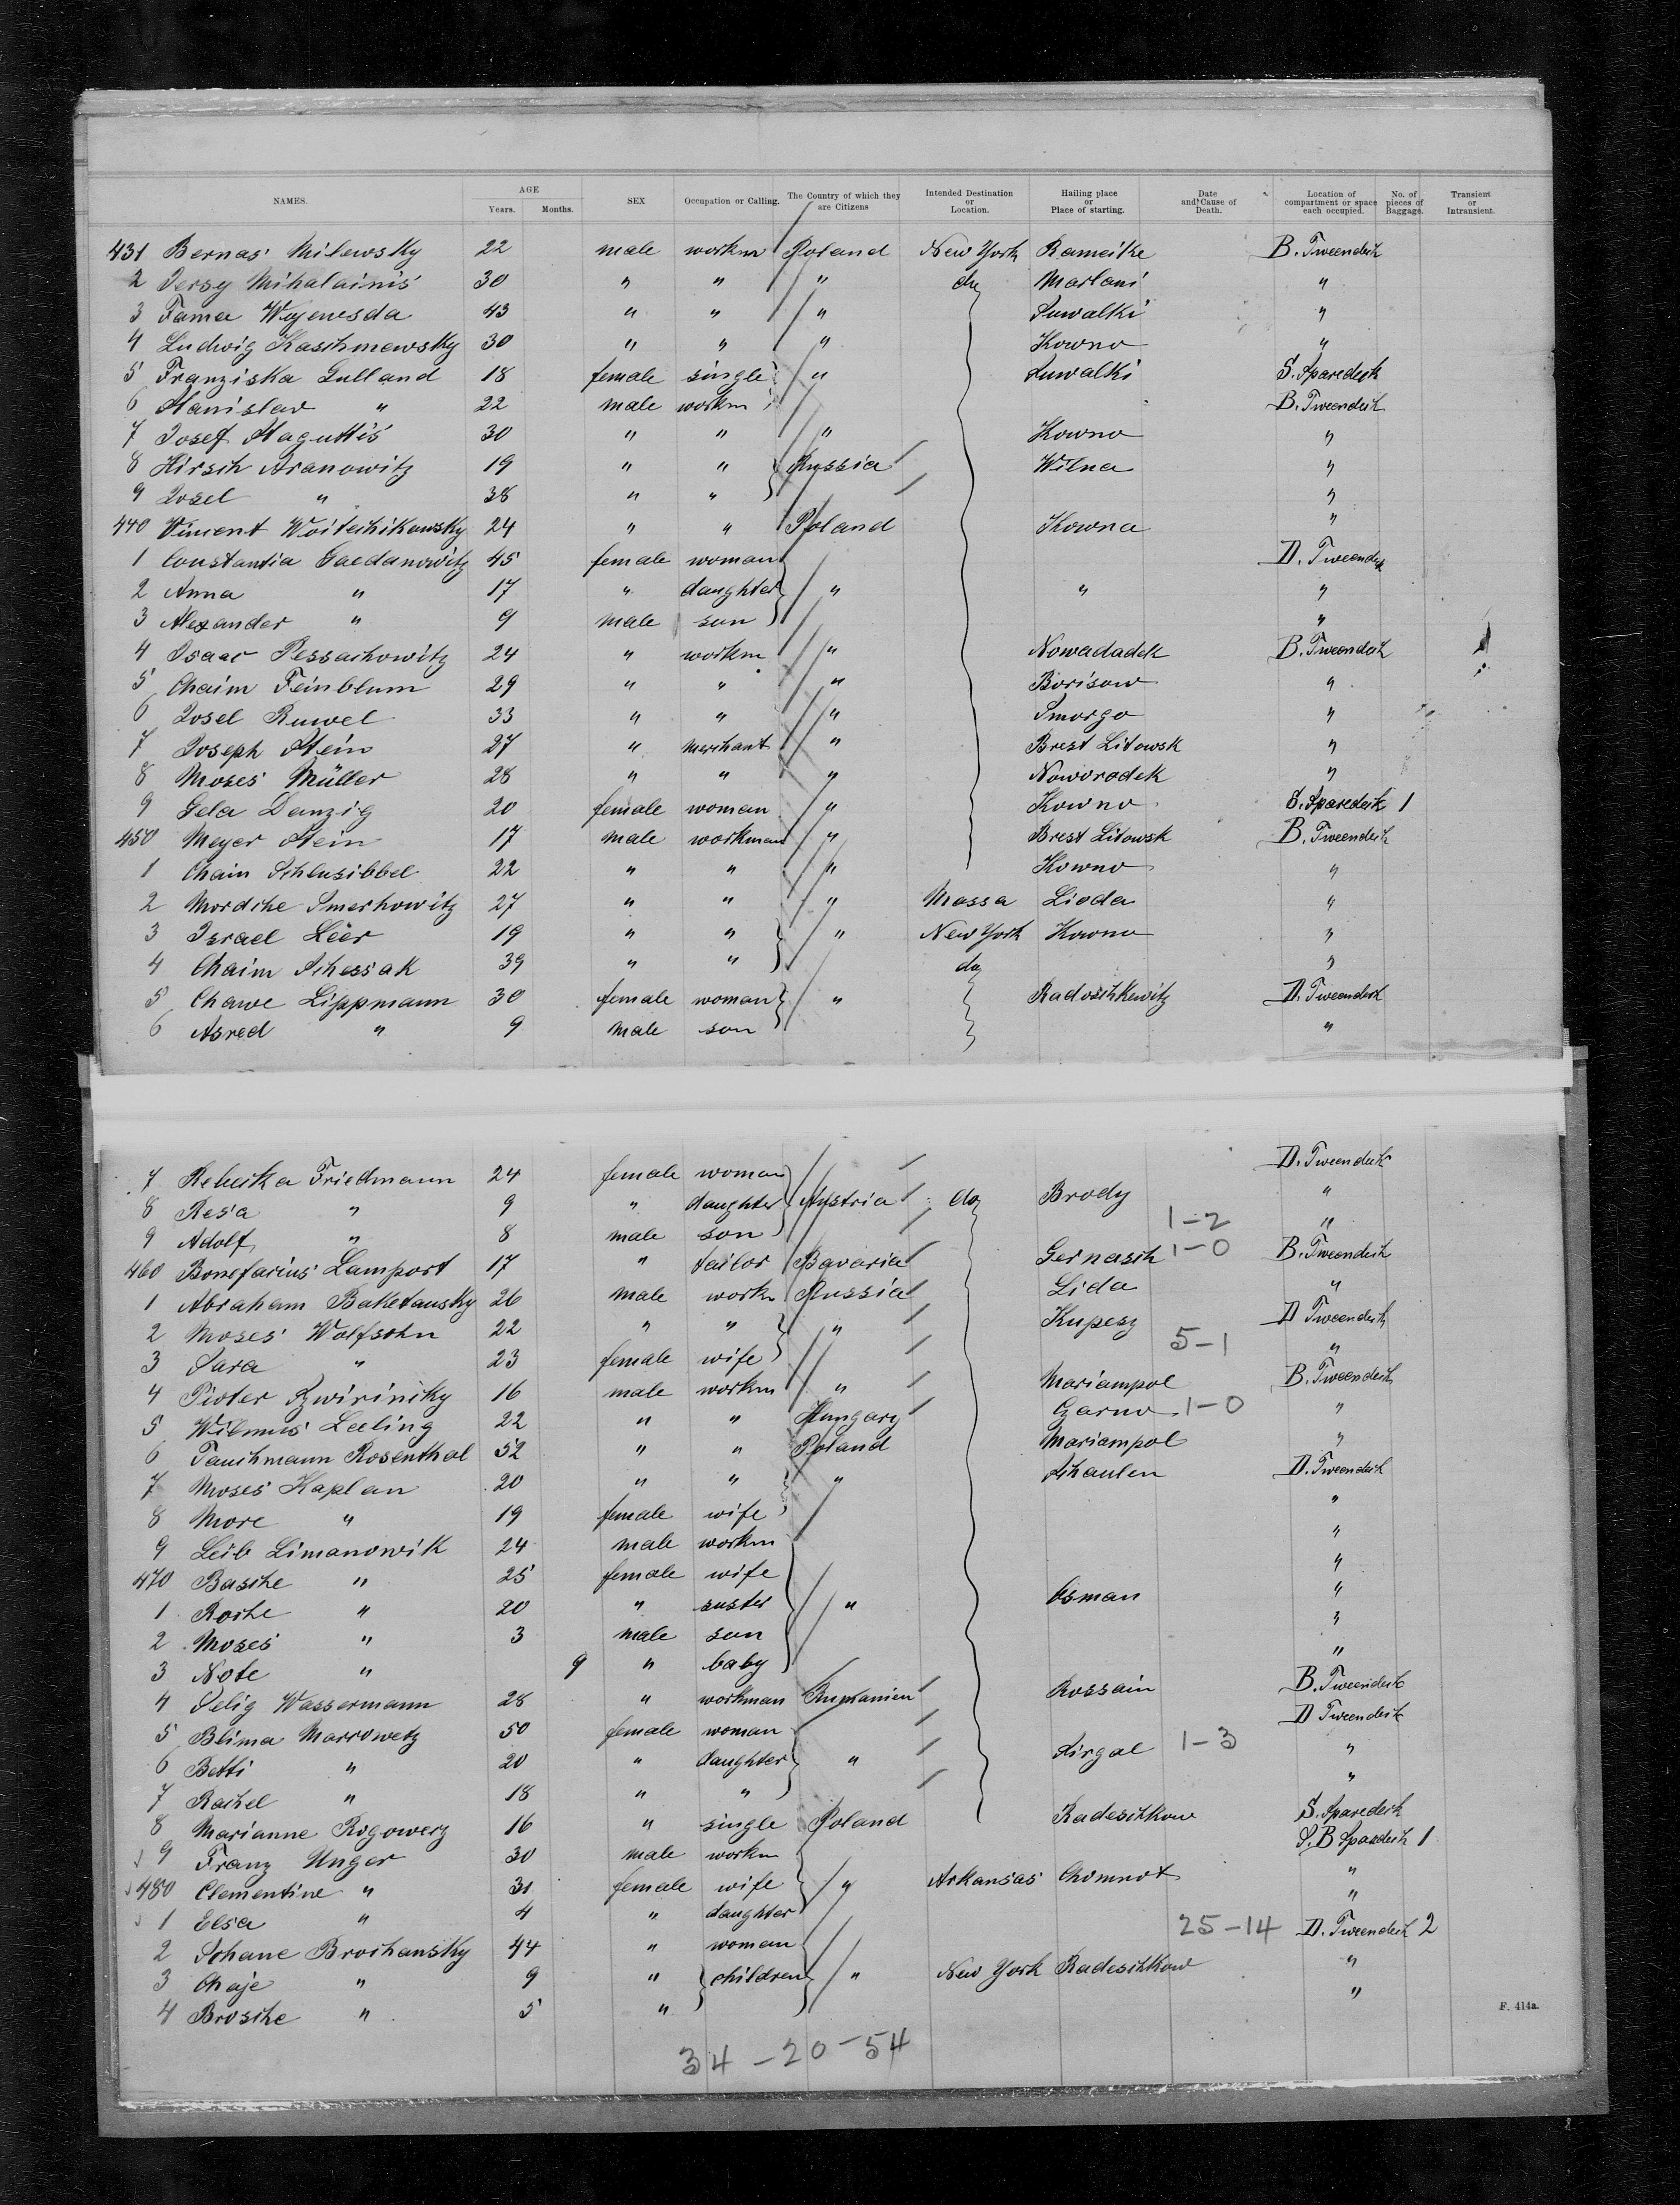 NAMES. AGE Years. Months. SEX Occupation or Calling. The Country of which they are Citizens Intended Destination or Location. Hailing place or Place of starting. Date and Cause of Death. Location of compartment or space each occupied. No. of pieces of Baggage. Transient or Intransient.
431 Bernas Milewsky 22 male workm Poland New York Rameike B. Tweendeck
2 Jersy Mihalainis 30 " " " do Marlani "
3 Tama Wojewsda 43 " " " Suwalki "
4 Ludwig Kaschmewsky 30 " " " Kowno "
5 Franziska Gulland 18 female single " Suwalki S. Spardeck
6 Stanislav " 22 male workm B. Tweendeck
7 Josef Staguttis 30 " " " Kowno "
8 Hirsch Aranowitz 19 " " Russia Wilna "
9 Josel " 38 " " "
440 Vincent Woitechikowsky 24 " " Poland Kowna "
1 Constantia Gaedanowitz 45 female woman D. Tweendeck
2 Anna " 17 " daughter " " "
3 Alexander " 9 male son "
4 Isaac Pessachowitz 24 " workm " Nowadadek B. Tweendeck
5 Chaim Feinblum 29 " " " Borisow "
6 Josel Ruwel 33 " " " Smorgo "
7 Joseph Stein 27 " merchant " Brest Litowsk "
8 Moses Müller 28 " " " Noworodek "
9 Gela Danzig 20 female woman " Kowno S. Spardeck 1
450 Meyer Stein 17 male workman " Brest Litowsk B. Tweendeck
1 Chain Schlusibbel 22 " " " Kowno "
2 Mordche Smerkowitz 27 " " " Massa Lioda "
3 Israel Leer 19 " " " New York Kowno "
4 Chaim Schessak 39 " " do "
5 Chawe Lippmann 30 female woman " Radoschkewitz D. Tweendeck
6 Asred " 9 male son "
7 Rebecka Friedmann 24 female woman D. Tweendeck
8 Resa " 9 " daughter Austria do Brody "
9 Adolf " 8 male son 1-2 "
460 Bonefacius Lamport 17 " tailor Bavaria Gernasch 1-0 B. Tweendeck
1 Abraham Baketansky 26 male workm Russia Lida "
2 Moses Wolfsohn 22 " " " Kupesz D Tweendeck
3 Sara " 23 female wife 5-1 "
4 Pioter Szwirinsky 16 male workm " Mariampol B. Tweendeck
5 Wilmus Leeling 22 " " Hungary Czarno 1-0 "
6 Tauchmann Rosenthal 52 " " Poland Mariampol "
7 Moses Kaplan 20 " " " Schaulen D. Tweendeck
8 More " 19 female wife "
9 Leib Limanowik 24 male workm "
470 Basche " 25 female wife "
1 Roche " 20 " suster " Osman "
2 Moses " 3 male son "
3 Note " 9 " baby "
4 Selig Wassermann 28 " workman Rumanien Rossain B. Tweendeck
5 Blima Marrowetz 50 female woman D Tweendeck
6 Betti " 20 " daughter " Sirgal 1-3 "
7 Rachel " 18 " " "
8 Marianne Rogowerz 16 " single Poland Radeschkow S. Spardeck
9 Franz Unger 30 male workm S.B Spardeck 1
480 Clementine " 31 female wife " Arkansas Chomnot "
1 Elsa " 4 " daughter "
2 Schane Brochansky 44 " woman 25-14 D. Tweendeck 2
3 Chaje " 9 " children " New York Radeschkow "
4 Brosche " 5 " "
F. 414a.
34-20-54